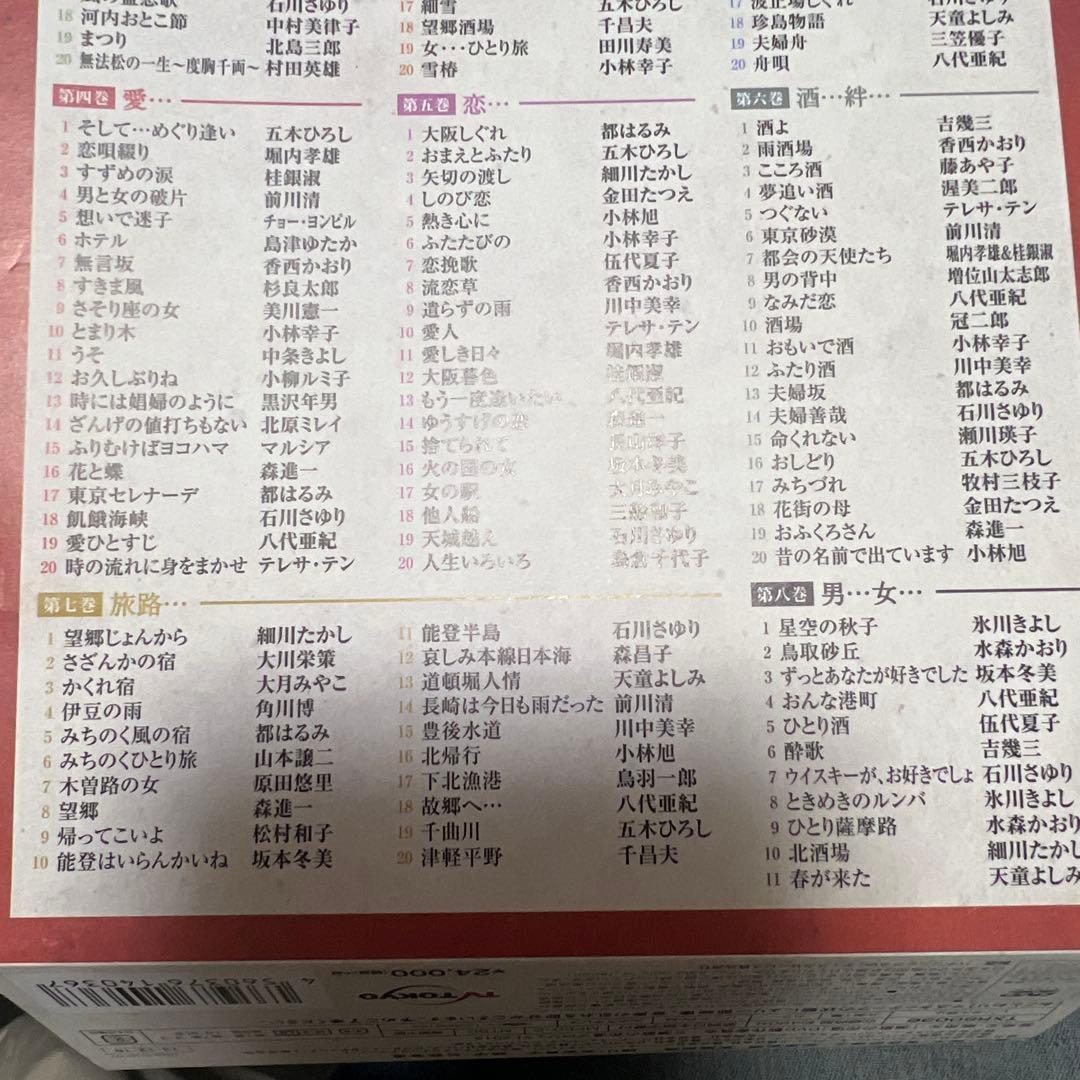 石川さゆり
18 河内おとこ節 中村美律子
19 まつり 北島三郎
20 無法松の一生〜度胸千両〜 村田英雄
17 細雪 五木ひろし
18 望郷酒場 千昌夫
19 女・・・ひとり旅 田川寿美
20 雪椿 小林幸子
17 波止場しぐれ 石川さゆり
18 珍島物語 天童よしみ
19 夫婦舟 三笠優子
20 舟唄 八代亜紀
第四巻 愛…
1 そして…めぐり逢い 五木ひろし
2 恋唄綴り 堀内孝雄
3 すずめの涙 桂銀淑
4 男と女の破片 前川清
5 想いで迷子 チョー・ヨンピル
6 ホテル 島津ゆたか
7 無言坂 香西かおり
8 すきま風 杉良太郎
9 さそり座の女 美川憲一
10 とまり木 小林幸子
11 うそ 中条きよし
12 お久しぶりね 小柳ルミ子
13 時には娼婦のように 黒沢年男
14 ざんげの値打ちもない 北原ミレイ
15 ふりむけばヨコハマ マルシア
16 花と蝶 森進一
17 東京セレナーデ 都はるみ
18 飢餓海峡 石川さゆり
19 愛ひとすじ 八代亜紀
20 時の流れに身をまかせ テレサ・テン
第五巻 恋…
1 大阪しぐれ 都はるみ
2 おまえとふたり 五木ひろし
3 矢切の渡し 細川たかし
4 しのび恋 金田たつえ
5 熱き心に 小林旭
6 ふたたびの 小林幸子
7 恋挽歌 伍代夏子
8 流恋草 香西かおり
9 遣らずの雨 川中美幸
10 愛人 テレサ・テン
11 愛しき日々 堀内孝雄
12 大阪暮色 桂銀淑
13 もう一度逢いたい 八代亜紀
14 ゆうすげの恋 森進一
15 捨てられて 長山洋子
16 火の国の女 坂本冬美
17 女の駅 大月みやこ
18 他人船 三船和子
19 天城越え 石川さゆり
20 人生いろいろ 島倉千代子
第六巻 酒…絆…
1 酒よ 吉幾三
2 雨酒場 香西かおり
3 こころ酒 藤あや子
4 夢追い酒 渥美二郎
5 つぐない テレサ・テン
6 東京砂漠 前川清
7 都会の天使たち 堀内孝雄&桂銀淑
8 男の背中 増位山太志郎
9 なみだ恋 八代亜紀
10 酒場 冠二郎
11 おもいで酒 小林幸子
12 ふたり酒 川中美幸
13 夫婦坂 都はるみ
14 夫婦善哉 石川さゆり
15 命くれない 瀬川瑛子
16 おしどり 五木ひろし
17 みちづれ 牧村三枝子
18 花街の母 金田たつえ
19 おふくろさん 森進一
20 昔の名前で出ています 小林旭
第七巻 旅路…
1 望郷じょんから 細川たかし
2 さざんかの宿 大川栄策
3 かくれ宿 大月みやこ
4 伊豆の雨 角川博
5 みちのく風の宿 都はるみ
6 みちのくひとり旅 山本譲二
7 木曽路の女 原田悠里
8 望郷 森進一
9 帰ってこいよ 松村和子
10 能登はいらんかいね 坂本冬美
11 能登半島 石川さゆり
12 哀しみ本線日本海 森昌子
13 道頓堀人情 天童よしみ
14 長崎は今日も雨だった 前川清
15 豊後水道 川中美幸
16 北帰行 小林旭
17 下北漁港 鳥羽一郎
18 故郷へ… 八代亜紀
19 千曲川 五木ひろし
20 津軽平野 千昌夫
第八巻 男…女…
1 星空の秋子 氷川きよし
2 鳥取砂丘 水森かおり
3 ずっとあなたが好きでした 坂本冬美
4 おんな港町 八代亜紀
5 ひとり酒 伍代夏子
6 酔歌 吉幾三
7 ウイスキーが、お好きでしょ 石川さゆり
8 ときめきのルンバ 氷川きよし
9 ひとり薩摩路 水森かおり
10 北酒場 細川たかし
11 春が来た 天童よしみ
¥24,000
TV TOKYO
4 560376 140367